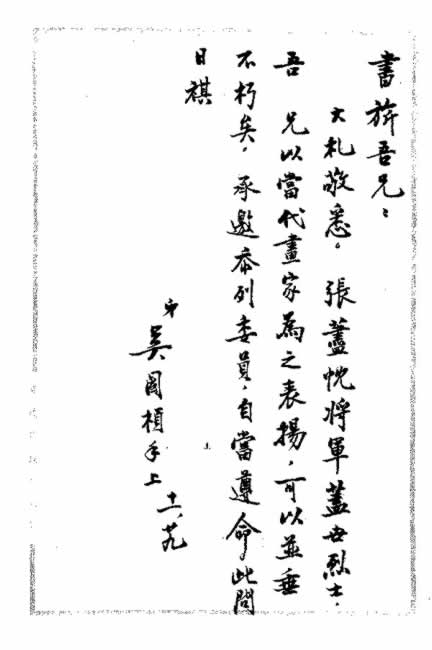 書旂吾兄：
大札敬悉。張藎忱將軍蓋世烈士，
吾 兄以當代畫家為之表揚，可以並垂
不朽矣。承邀忝列委員，自當遵命。此問
日祺
弟 吳國楨手上 十一、廿九